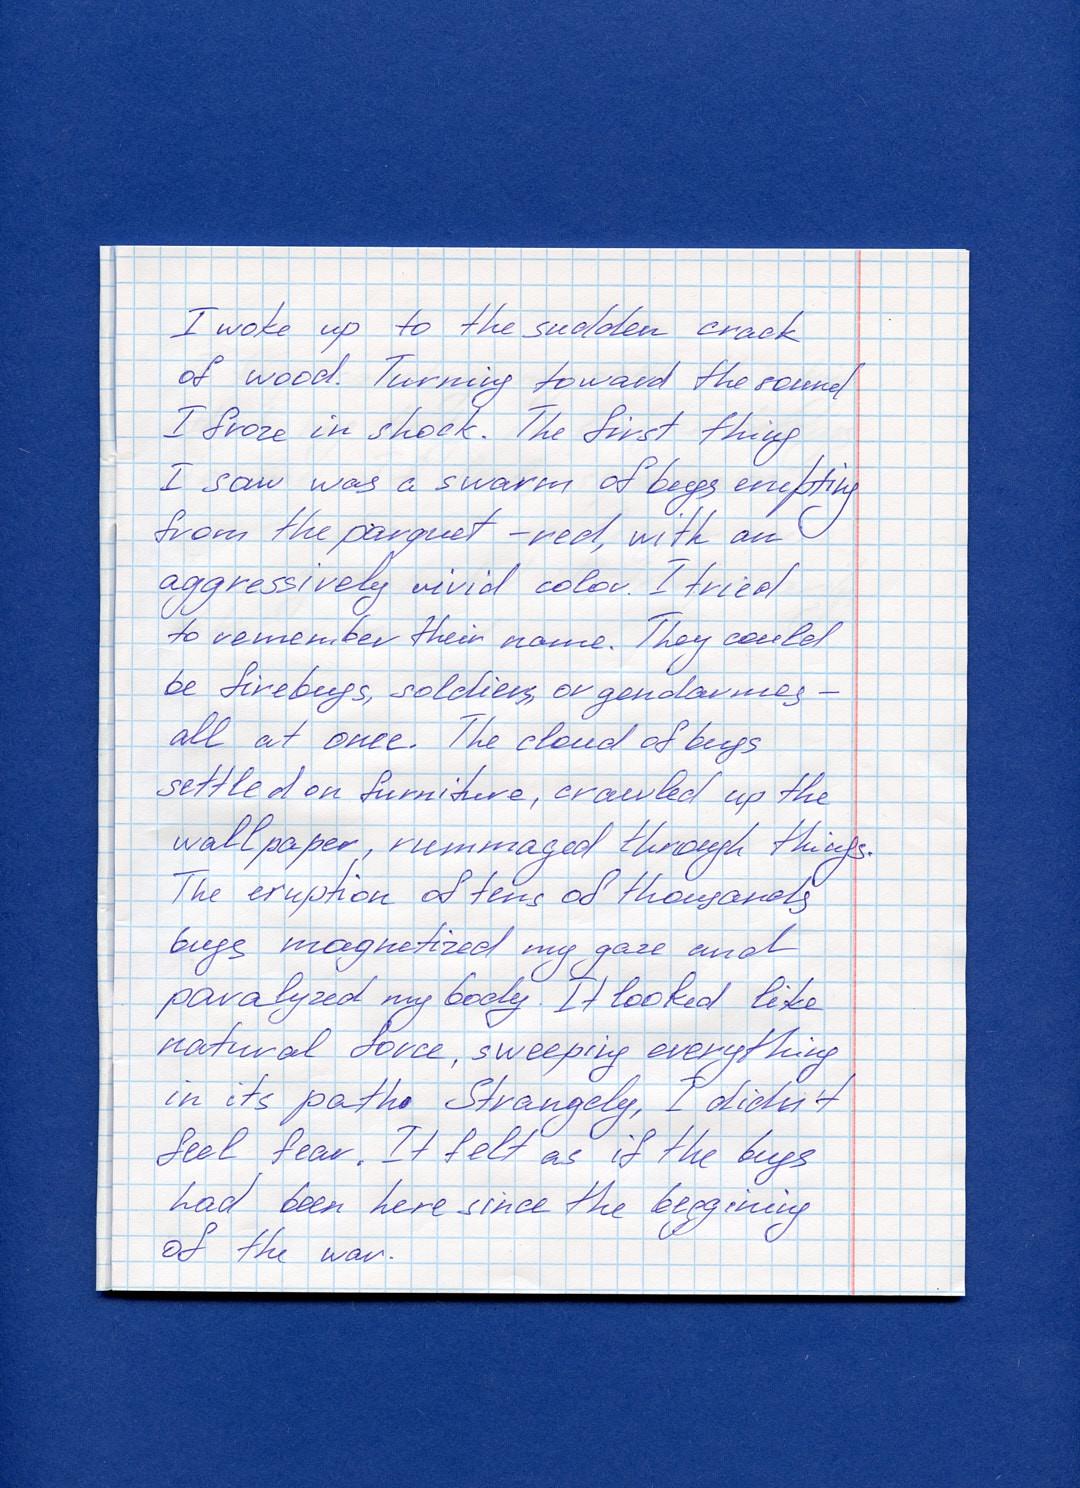 I woke up to the sudden crack
of wood. Turning toward the sound
I froze in shock. The first thing
I saw was a swarm of bugs erupting
from the parquet – red, with an
aggressively vivid color. I tried
to remember their name. They could
be firebugs, soldiers, or gendarmes –
all at once. The cloud of bugs
settled on furniture, crawled up the
wallpaper, rummaged through things.
The eruption of tens of thousands
bugs magnetized my gaze and
paralyzed my body. It looked like
natural force, sweeping everything
in its path. Strangely, I didn't
feel fear. It felt as if the bugs
had been here since the beggining
of the war.